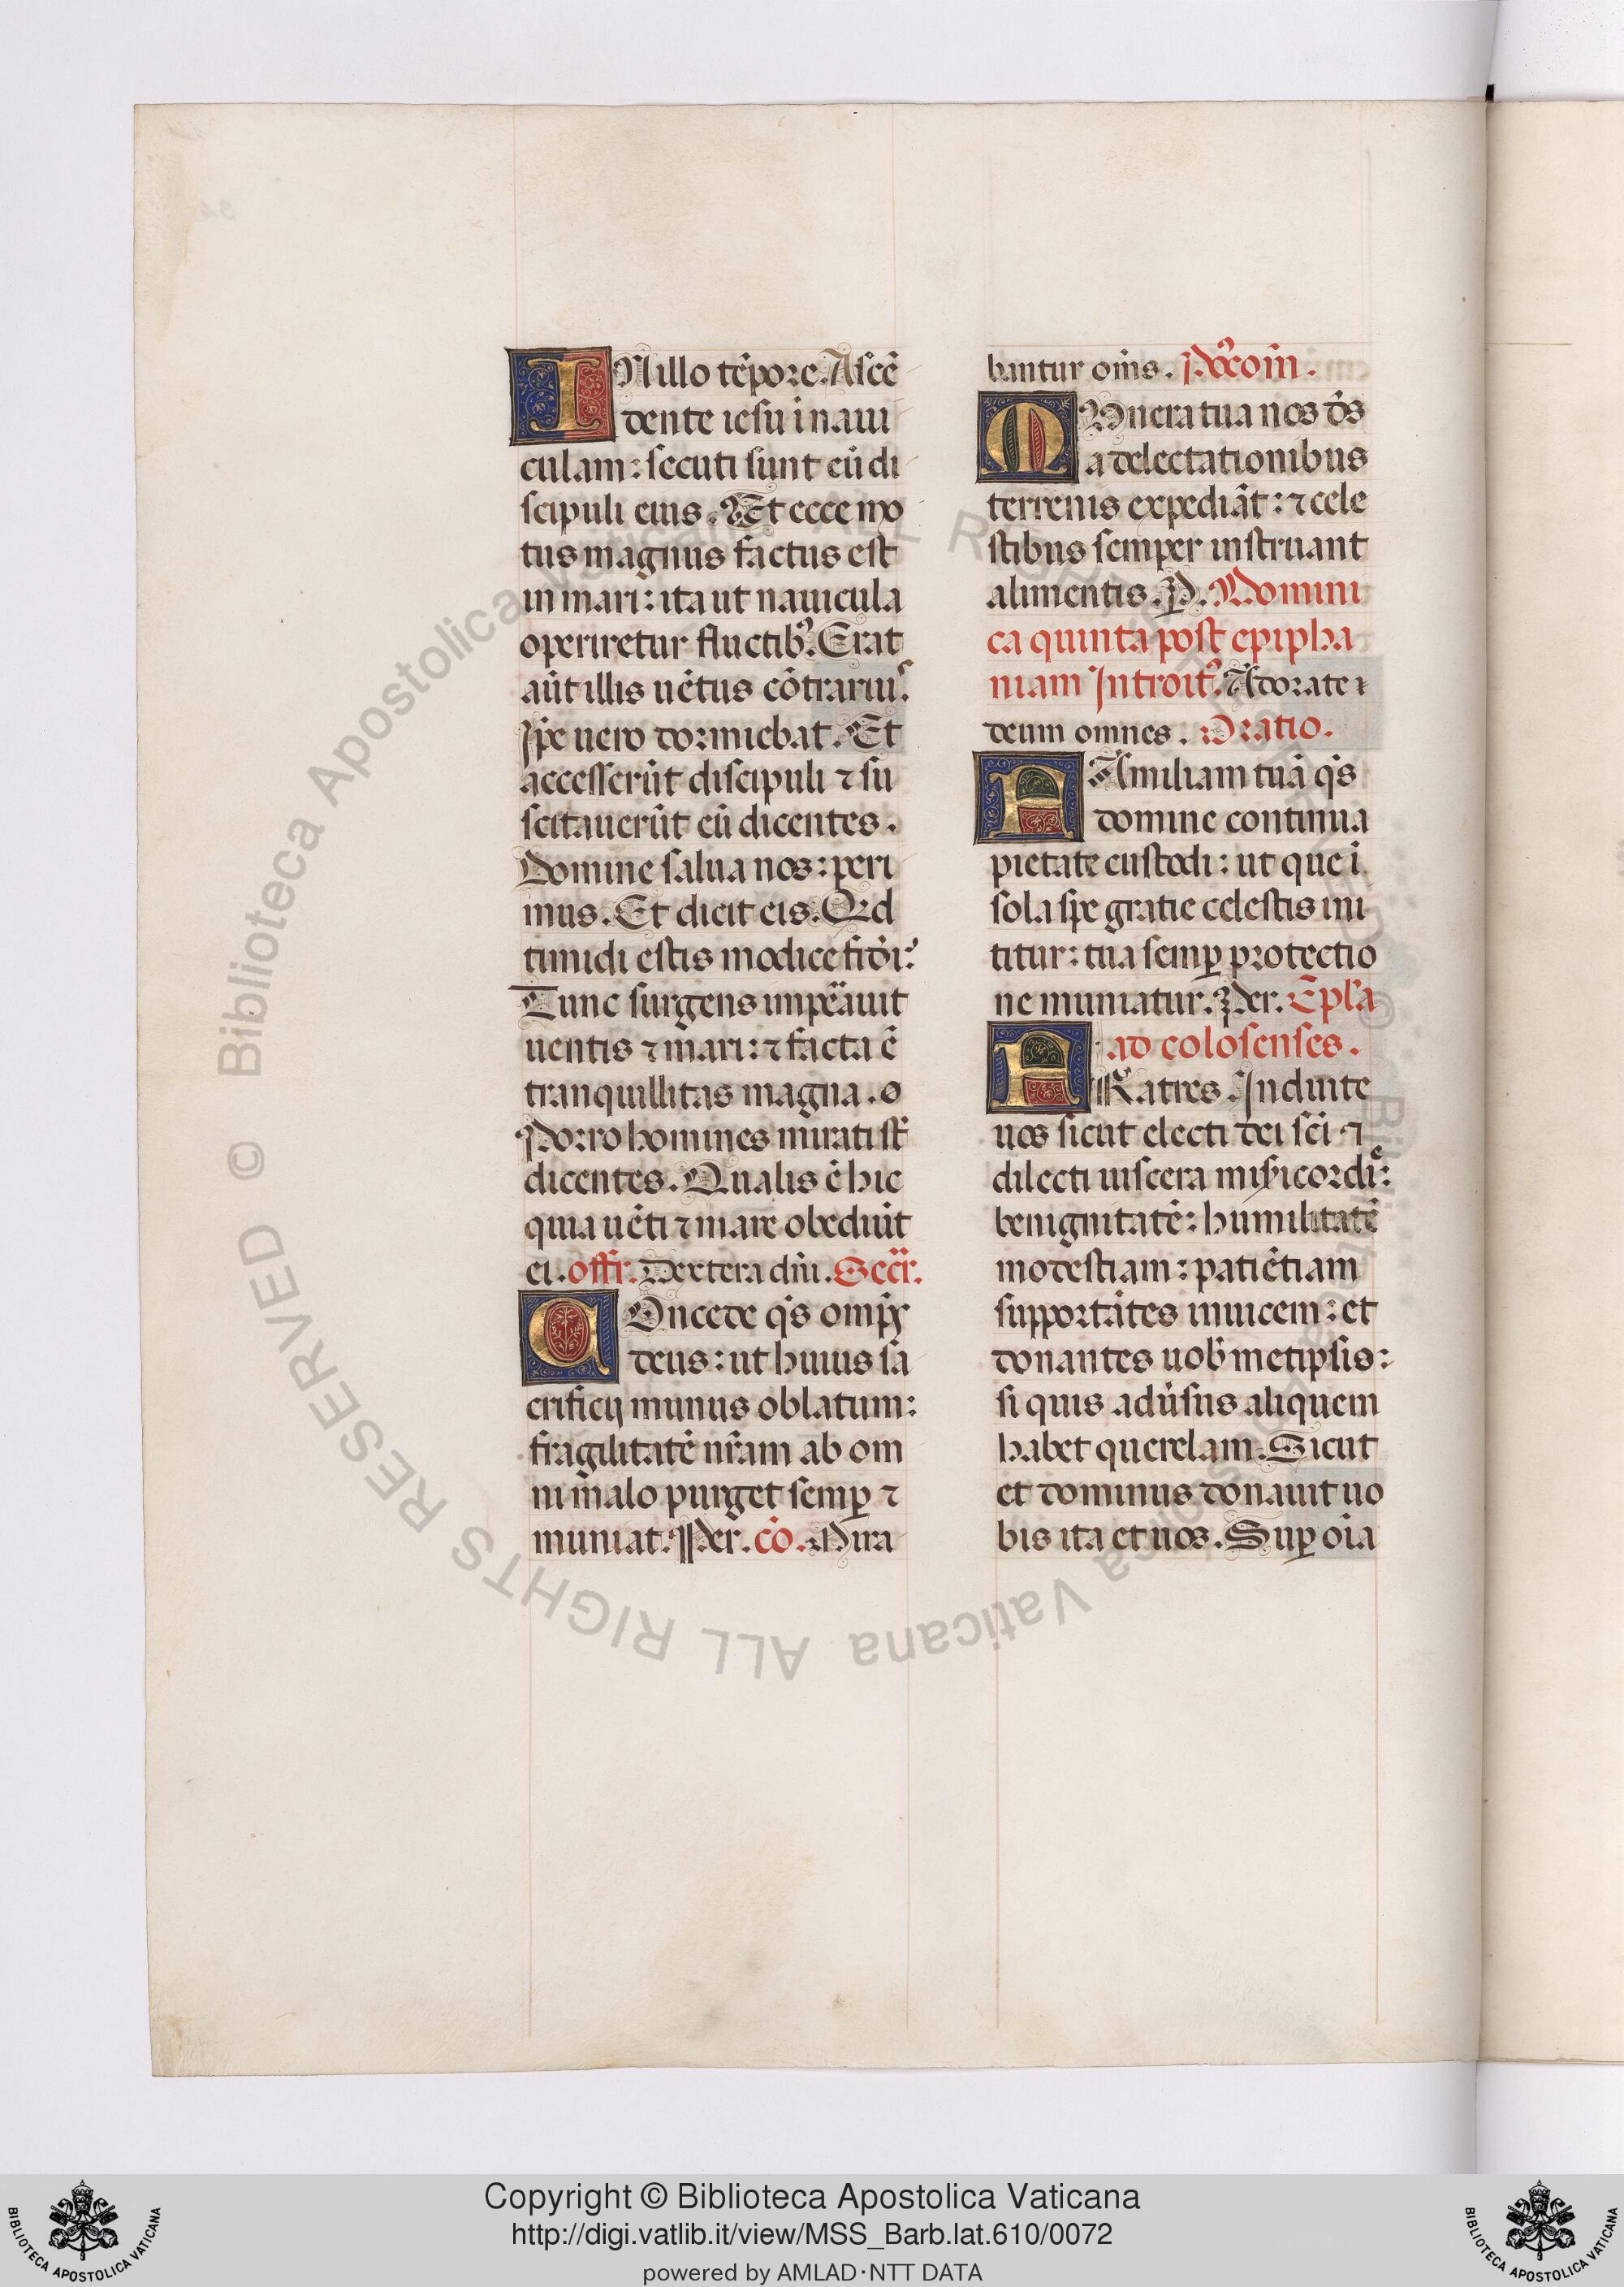 IN illo tēpore. Ascē
dente iesu ī naui
culam: secuti sunt eū di
scipuli eius. Et ecce mo
tus magnus factus est
in mari: ita ut nauicula
operiretur fluctibꝰ. Erat
aūt illis uētus cōtrariuˢ.
Ip̄e uero dormiebat. Et
accesserūt discipuli ⁊ su
scitauerūt eū dicentes.
Domine salua nos: peri
mus. Et dicit eis. Qd
timidi estis modice fid̄i?
Tunc surgens imp̄auit
uentis ⁊ mari: ⁊ facta ē
tranquillitas magna. o
Porro homines mirati st̄
dicentes. Qualis ē hic
quia uēti ⁊ mare obediūt
ei. offr̄. Dextera dn̄i. Secr̄.
COncede qs̄ omp̄s
deus: ut huius sa
crificij munus oblatum:
fragilitatē nr̄am ab om
ni malo purget semꝑ ⁊
muniat. Per. cō. Mira
bantur om̄s. Pꝰcom̄.
MUnera tua nos d̄s
a delectationibus
terrenis expediāt: ⁊ cele
stibus semper instruant
alimentis. P. Domini
ca quinta post epipha
niam Introitꝰ. Adorate
deum omnes. Oratio.
FAmiliam tuā qs̄
domine continua
pietate custodi: ut que ī
sola spe gratie celestis ini
titur: tua semꝑ protectio
ne muniatur. Per. Epl̄a
ad colosenses.
FRatres. Induite
uos sicut electi dei sc̄i ⁊
dilecti uiscera mis̄icordiᵉ:
benignitatē: humilitatē
modestiam: patiētiam
supportātes inuicem: et
donantes uob̄ metipsis:
si quis adūsus aliquem
habet querelam. Sicut
et dominus donauit uo
bis ita et uos. Suꝑ oīa
© Biblioteca Apostolica Vaticana ALL RIGHTS RESERVED
Copyright © Biblioteca Apostolica Vaticana
http://digi.vatlib.it/view/MSS_Barb.lat.610/0072
powered by AMLAD·NTT DATA
BIBLIOTECA APOSTOLICA VATICANA
BIBLIOTECA APOSTOLICA VATICANA